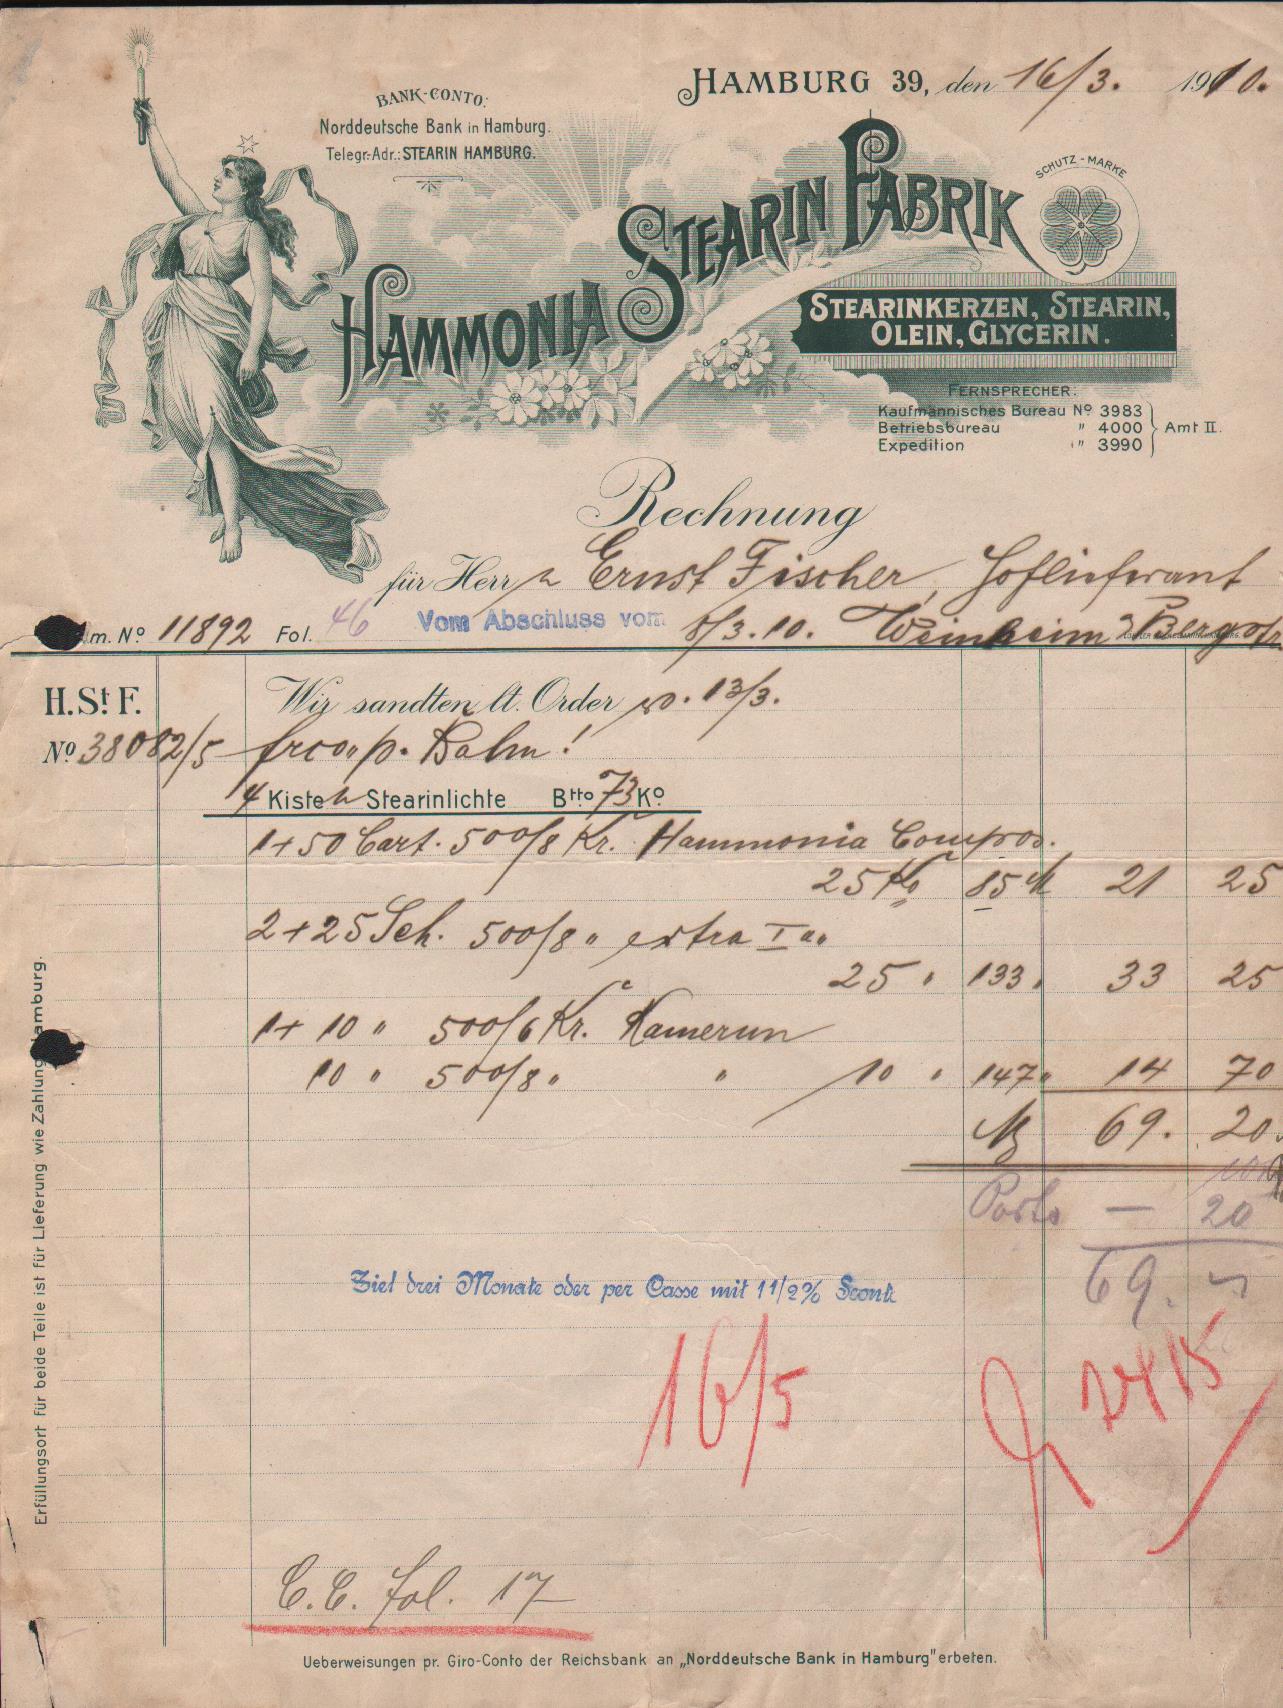 BANK-CONTO:
Norddeutsche Bank in Hamburg.
Telegr.-Adr.: STEARIN HAMBURG.
HAMBURG 39, den 16/3. 1910.
HAMMONIA STEARIN FABRIK
SCHUTZ-MARKE
STEARINKERZEN, STEARIN,
OLEIN, GLYCERIN.
FERNSPRECHER:
Kaufmännisches Bureau No 3983
Betriebsbureau " 4000 Amt II.
Expedition " 3990
Rechnung
für Herrn Ernst Fischer, Hoflieferant
m. No 11892 Fol. 46 Vom Abschluss vom 8/3.10. Weinheim
H. St. F. Wir sandten lt. Order v. 13/3.
No 38082/5 frco. p. Bahn!
4 Kisten Stearinlichte Btto 73 Ko
1+50 Cart. 500/8 Kr. Hammonia Compos.
25 Ko 85 M 21 25
2+25 Sch. 500/8 " extra Ia "
25 " 133 " 33 25
1+10 " 500/6 Kr. Kamerun
10 " 500/8 " " 10 " 147 " 14 70
M 69. 20
Porto — 20
69.
Ziel drei Monate oder per Casse mit 1 1/2% Sconto
16/5
C.C. fol. 17
Ueberweisungen pr. Giro-Conto der Reichsbank an „Norddeutsche Bank in Hamburg" erbeten.
Erfüllungsort für beide Teile ist für Lieferung wie Zahlung Hamburg.